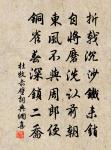 折戟沉沙鐵未銷
自將磨洗認前朝
東風不與周郎便
銅雀春深鎖二喬
杜牧赤壁詞典網書